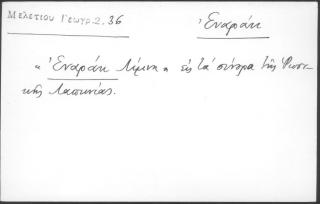 Μελετίου Γεωγρ. 2, 36
Ἐναράκ
« Ἐναράκ λίμνη » εἰς τὰ σύνορα τῆς Ρωσσι-
κῆς Λαπωνίας.